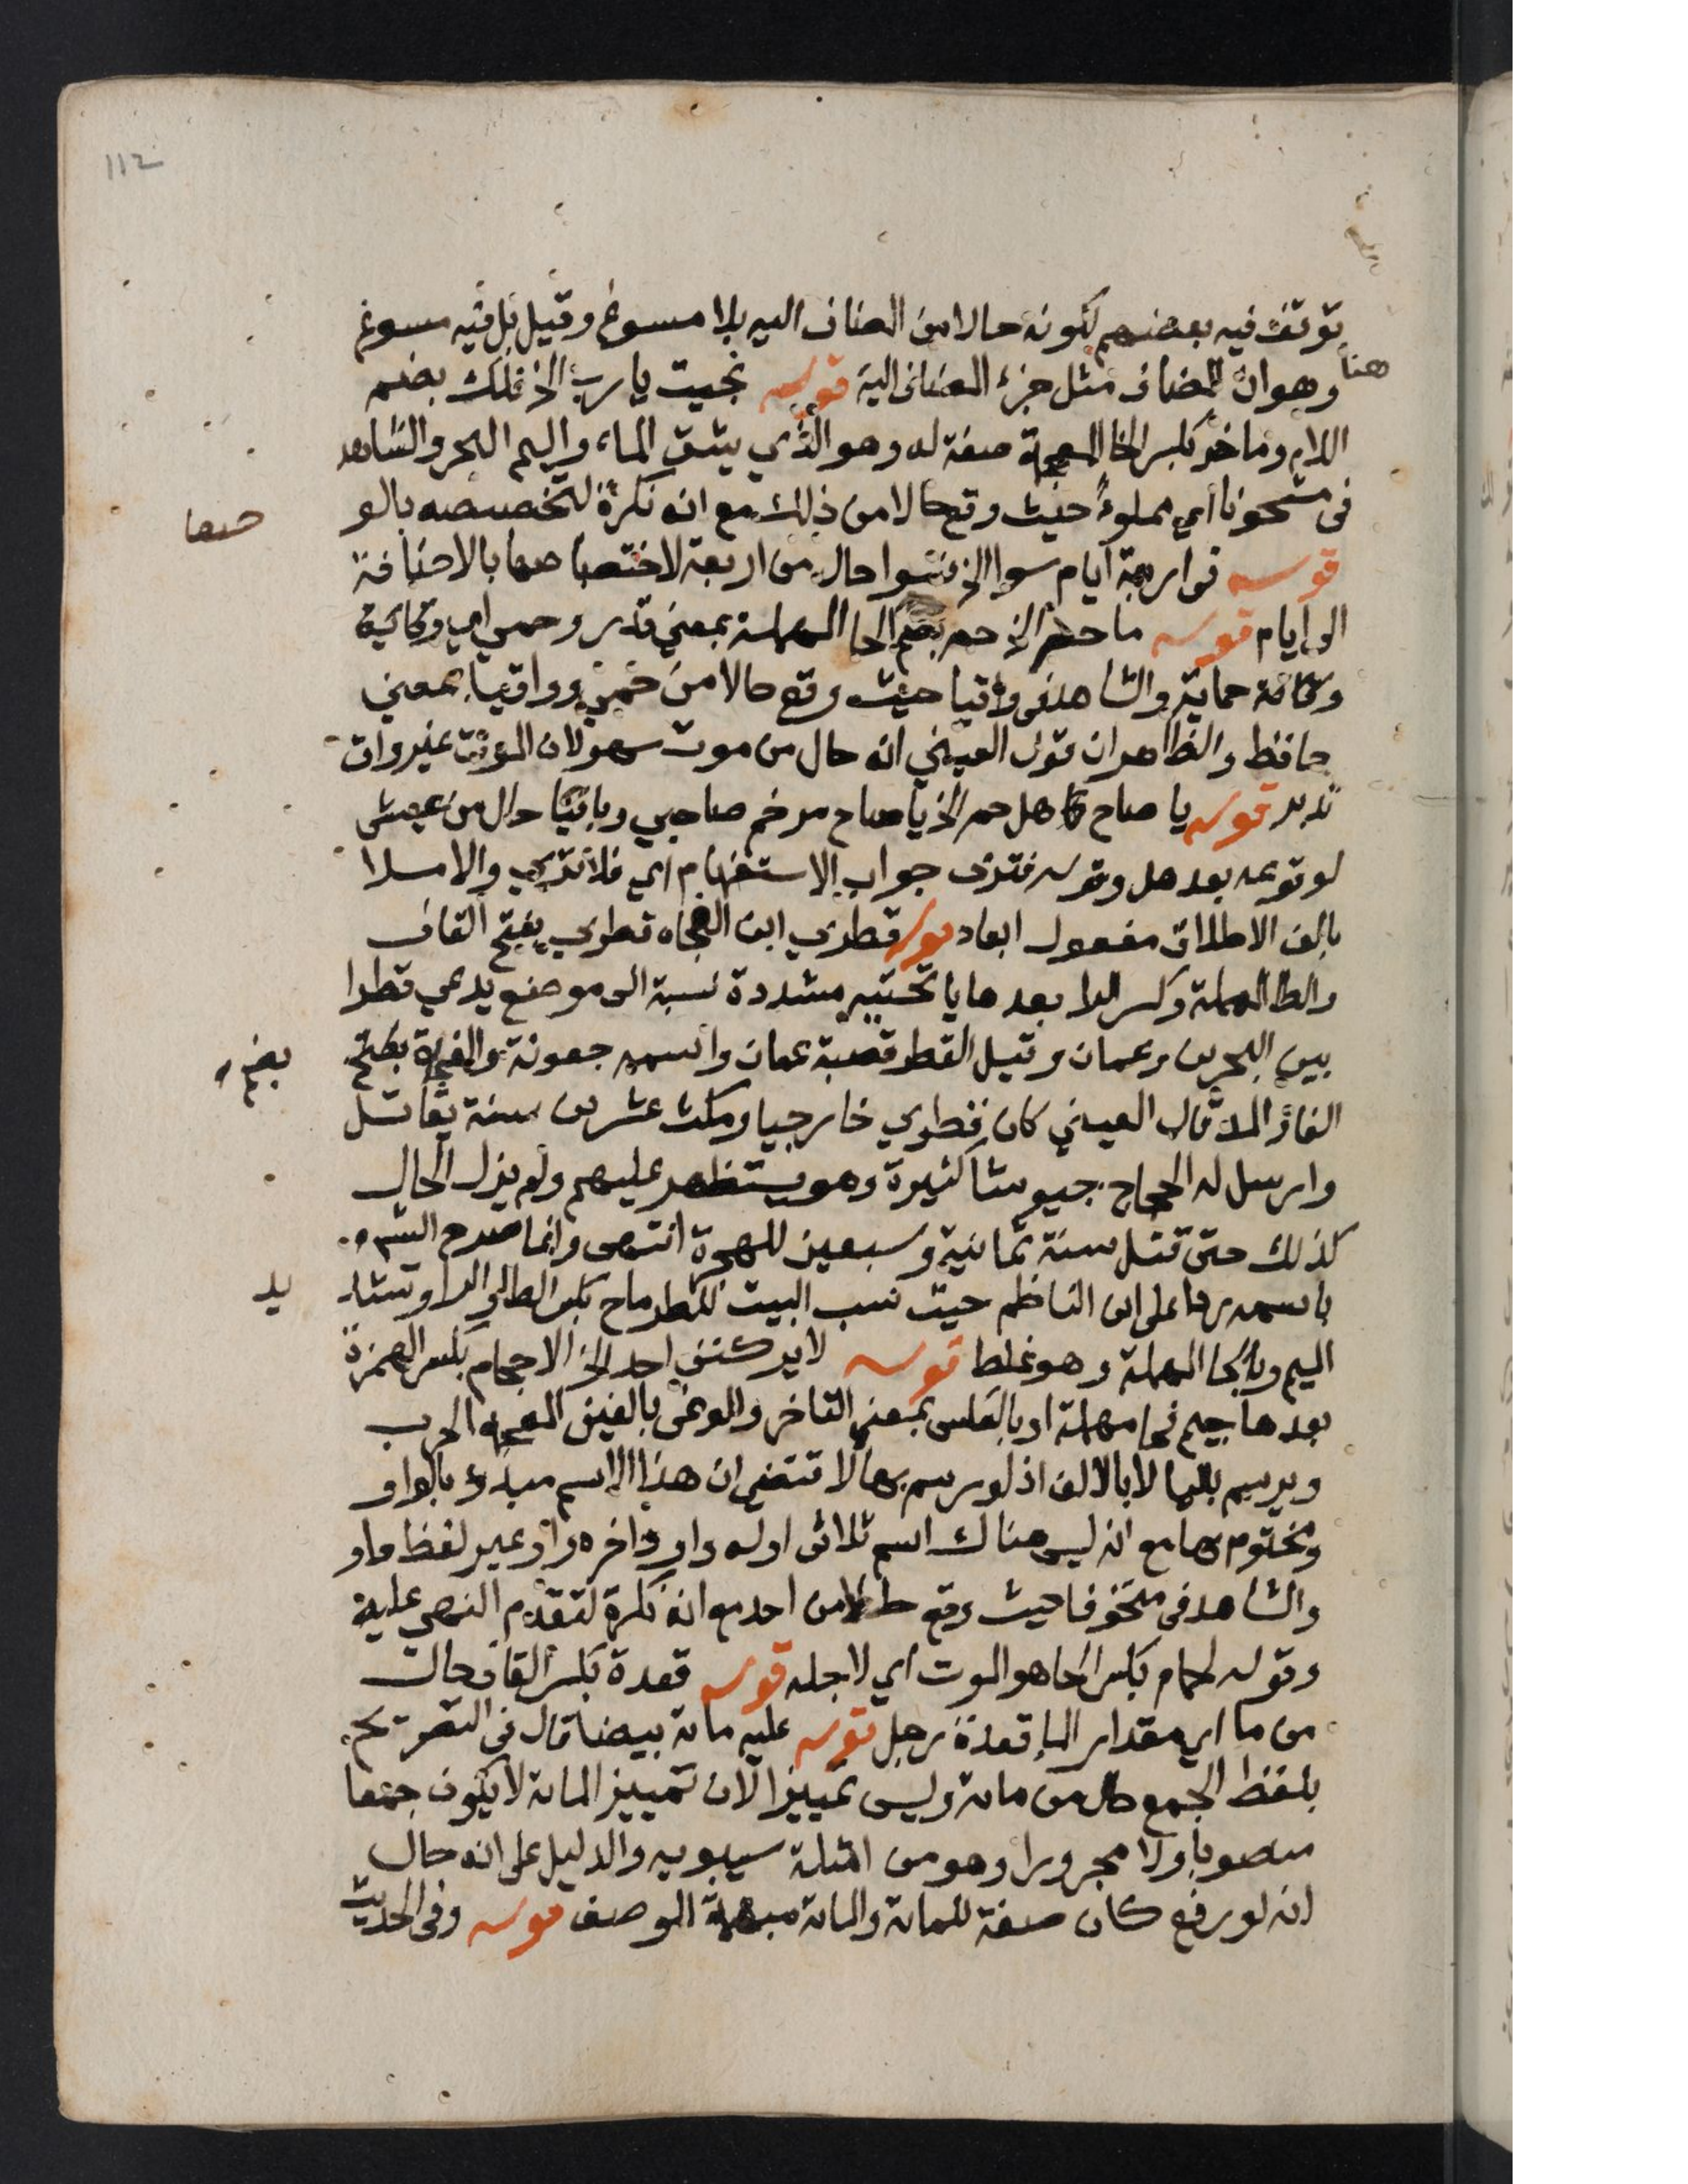 112
توقف فيه بعضهم لكونه حالا من المضاف اليه بلا مسوغ وقيل بل فيه مسوغ
هنا وهو ان المضاف مثل جزء المضاف اليه قوله نجيت يا رب الخ فلك بضم
اللام وماخر بكسر الخا المعجمة صفة له وهو الذي يشق الماء واليم البحر والشاهد
في مشحونا اي مملوءا حيث وقع حالا من ذلك مع انه نكرة لتخصصه بالو
صفها
قوله في اربعة ايام سوا الخ فسوا حال من اربعة لاختصاصها بالاضافة
الى ايام قوله ما حم الخ حم بضم الحا المهملة بمعني قدر وحمي اي وقاية
والشاهد في واقيا حيث وقع حالا من حمي وواقيا بمعني
حافظ والظاهر ان قول العيني انه حال من موت سهو لان الموت غير واق
تدبر قوله يا صاح هل حم الخ يا صاح مرخم صاحبي وباقيا حال من عيش
لوقوعه بعد هل وقوله فتري جواب الاستفهام اي فلا تري والاملا
بالف الاطلاق مفعول ابعاد قوله قطري ابن الفجاه قطري بفتح القاف
والطا المهملة وكسر الرا بعدها يا تحتية مشددة نسبة الى موضع يدعي قطرا
بين البحرين وعمان وقيل القطر قصبة عمان واسمه جعونة والفجاة بفتح
بضم
الفا والمد قال العيني كان قطري خارجيا ومكث عشرين سنة يقاتل
وارسل له الحجاج جيوشا كثيرة وهو يستظهر عليهم ولم يزل الحال
كذلك حتي قتل سنة ثمانية وسبعين للهجرة انتهي وانما صرح الش
باسمه ردا على ابن الناظم حيث نسب البيت للطرماح بكسر الطا والرا وتشد
يد
الميم وبالحا المهملة وهو غلط قوله لا يركنن احد الخ الاحجام بكسر الهمزة
بعدها جيم فحا مهملة او بالعكس بمعني التاخر والوغي بالغين المعجمه الحرب
ويرسم باليا لا بالالف اذ لو رسم بها لاقتضي ان هذا الاسم مبدو بالواو
ومختوم بها مع انه ليس هناك اسم ثلاثي اوله واو واخره واو غير لفظ واو
والشاهد في متخوفا حيث وقع حالا من احد مع انه نكرة لتقدم النهي عليه
وقوله لحمام بكسر الحا هو الموت اي لاجله قوله قعدة بكسر القاف حال
من ما اي مقدار الما قعدة رجل قوله عليه مائة بيضا قال في التصريح
بلفظ الجمع حال من مائة وليس تمييزا لان تمييز المائة لا يكون جمعا
منصوبا ولا مجرورا وهو من امثلة سيبويه والدليل على انه حال
انه لو رفع كان صفة للمائة والمائة مبهمة الوصف قوله وفي الحديث